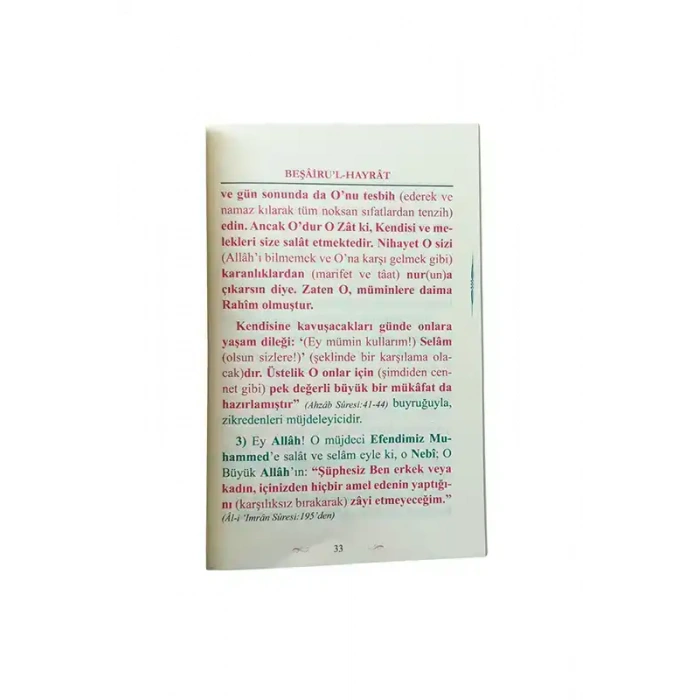 BEŞÂİRU'L-HAYRÂT
ve gün sonunda da O'nu tesbih (ederek ve
namaz kılarak tüm noksan sıfatlardan tenzih)
edin. Ancak O'dur O Zât ki, Kendisi ve me-
lekleri size salât etmektedir. Nihayet O sizi
(Allâh'ı bilmemek ve O'na karşı gelmek gibi)
karanlıklardan (marifet ve tâat) nur(un)a
çıkarsın diye. Zaten O, müminlere daima
Rahîm olmuştur.
Kendisine kavuşacakları günde onlara
yaşam dileği: '(Ey mümin kullarım!) Selâm
(olsun sizlere!)' (şeklinde bir karşılama ola-
cak)dır. Üstelik O onlar için (şimdiden cen-
net gibi) pek değerli büyük bir mükâfat da
hazırlamıştır" (Ahzâb Sûresi:41-44) buyruğuyla,
zikredenleri müjdeleyicidir.
3) Ey Allâh! O müjdeci Efendimiz Mu-
hammed'e salât ve selâm eyle ki, o Nebî; O
Büyük Allâh'ın: "Şüphesiz Ben erkek veya
kadın, içinizden hiçbir amel edenin yaptığı-
nı (karşılıksız bırakarak) zâyi etmeyeceğim."
(Âl-i 'İmrân Sûresi:195'den)
33